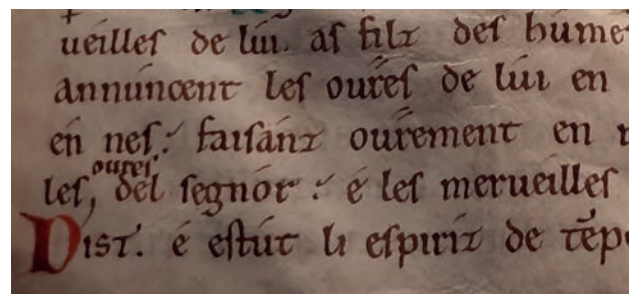 ueilleſ de lui. aſ filz deſ hume
annuncent leſ oureſ de lui en
en neſ: faiſanz ourement en
oureſ
leſ, del ſegnor: é leſ merueilleſ
Diſt. é eſtut li eſpiriz de tēp